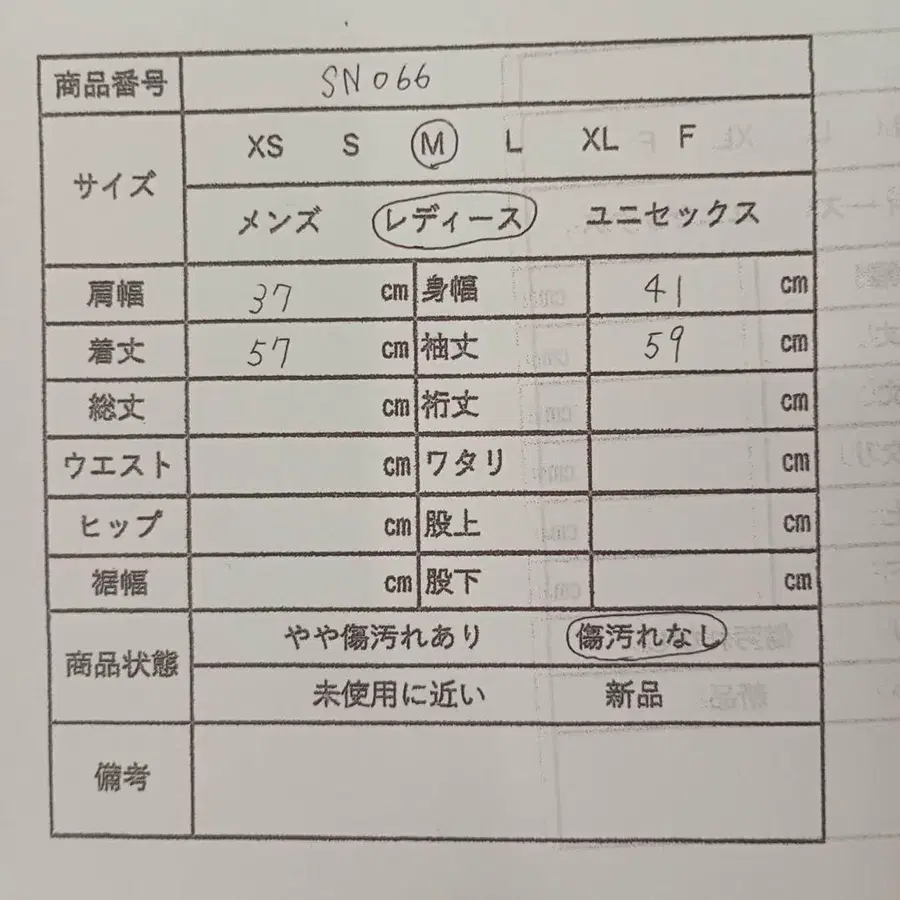 商品番号 SN066
サイズ XS S M L XL F
メンズ レディース ユニセックス
肩幅 37 cm 身幅 41 cm
着丈 57 cm 袖丈 59 cm
総丈 cm 裄丈 cm
ウエスト cm ワタリ cm
ヒップ cm 股上 cm
裾幅 cm 股下 cm
商品状態 やや傷汚れあり 傷汚れなし
未使用に近い 新品
備考